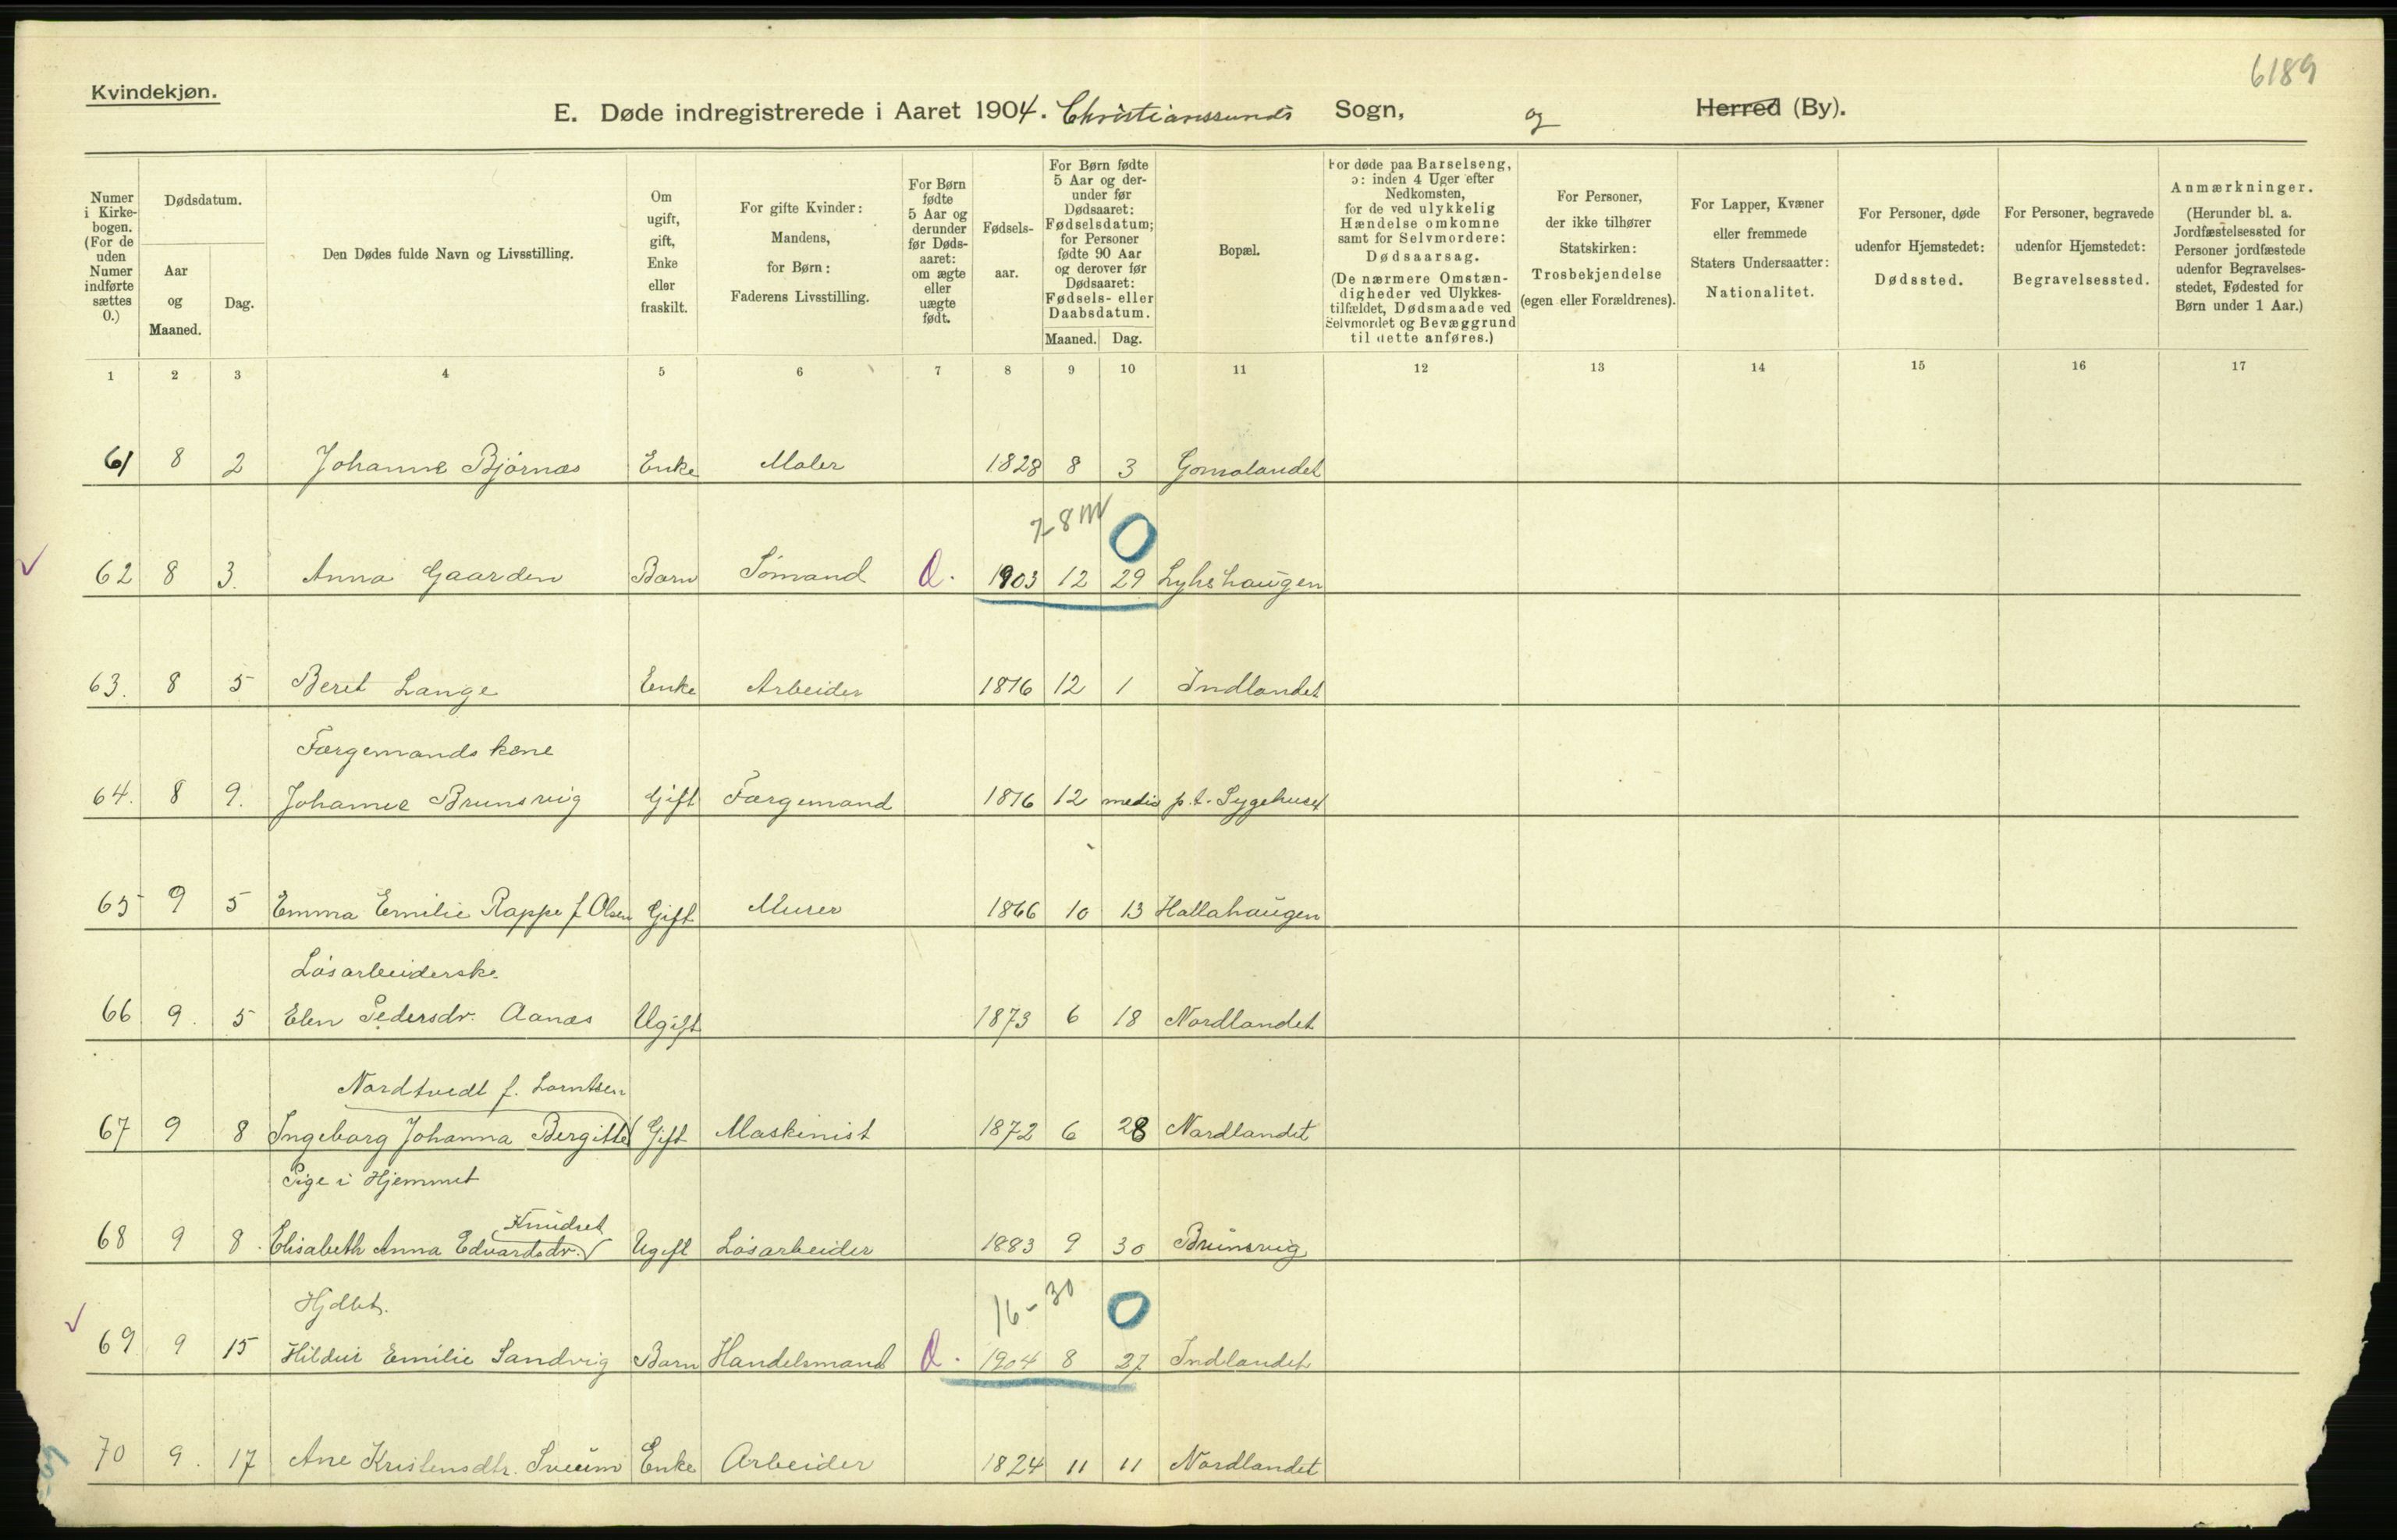 6189
Kvindekjøn.
E. Døde indregistrerede i Aaret 1904. Christianssunds Sogn, og Herred (By).
Numer i Kirke-bogen. (For de uden Numer indførte sættes 0.)
Dødsdatum.
Aar og Maaned.
Dag.
Den Dødes fulde Navn og Livsstilling.
Om ugift, gift, Enke eller fraskilt.
For gifte Kvinder: Mandens, for Børn: Faderens Livsstilling.
For Børn fødte 5 Aar og derunder før Døds-aaret: om ægte eller uægte født.
Fødsels-aar.
For Børn fødte 5 Aar og der-under før Dødsaaret: Fødselsdatum; for Personer fødte 90 Aar og derover før Dødsaaret: Fødsels- eller Daabsdatum.
Maaned. Dag.
Bopæl.
For døde paa Barselseng, ɔ: inden 4 Uger efter Nedkomsten, for de ved ulykkelig Hændelse omkomne samt for Selvmordere: Dødsaarsag. (De nærmere Omstæn-digheder ved Ulykkes-tilfældet, Dødsmaade ved Selvmordet og Bevæggrund til dette anføres.)
For Personer, der ikke tilhører Statskirken: Trosbekjendelse (egen eller Forældrenes).
For Lapper, Kvæner eller fremmede Staters Undersaatter: Nationalitet.
For Personer, døde udenfor Hjemstedet: Dødssted.
For Personer, begravede udenfor Hjemstedet: Begravelsessted.
Anmærkninger. (Herunder bl. a. Jordfæstelsessted for Personer jordfæstede udenfor Begravelses-stedet, Fødested for Børn under 1 Aar.)
1 2 3 4 5 6 7 8 9 10 11 12 13 14 15 16 17
61 8 2 Johanne Bjørnæs Enke Maler 1828 8 3 Gomalandet
7-8 m 0
62 8 3. Anna Gaarden Barn Sømand 1903 12 29 Lyhshaugen
63. 8 5 Beret Lange Enke Arbeider 1816 12 1 Indlandet
Færgemands kone
64. 8 9. Johanne Brunsvig Gift Færgemand 1816 12 medio p.t. Sygehuset
65 9 5 Emma Emilie Rappe f. Olsen Gift Murer 1866 10 13 Hallahaugen
Løsarbeiderske
66 9. 5 Elen Pedersdr. Aanæs Ugift 1873 6 18 Nordlandet
Nordtvedt f. Lorntsen
67 9 8 Ingeborg Johanna Bergitte Gift Maskinist 1872 6 28 Nordlandet
Pige i Hjemmet
Knudset
68 9 8. Elisabeth Anna Edvardsdr. Ugift Løsarbeider 1883 9 30 Brunsvig
Hjdbt. 16-30 0
69 9 15 Hildur Emilie Sandvig Barn Handelsmand 1904 8 27 Indlandet
70 9. 17 Ane Kristensdtr. Sveum Enke Arbeider 1824 11 11 Nordlandet